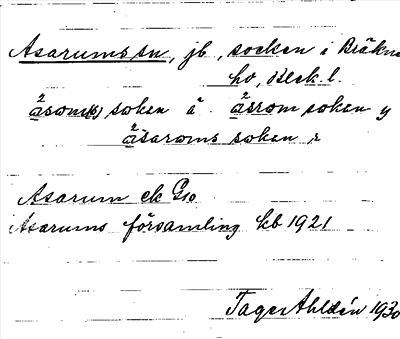 Asarums sn, jb, socken i Bräkne
hd, Blek. l.
²asom(s) sokan ä. ²asrom sokan y
²asaroms sokan r
Asarum ek G10
Asarums församling kb 1921
Tage Ahldén 1930